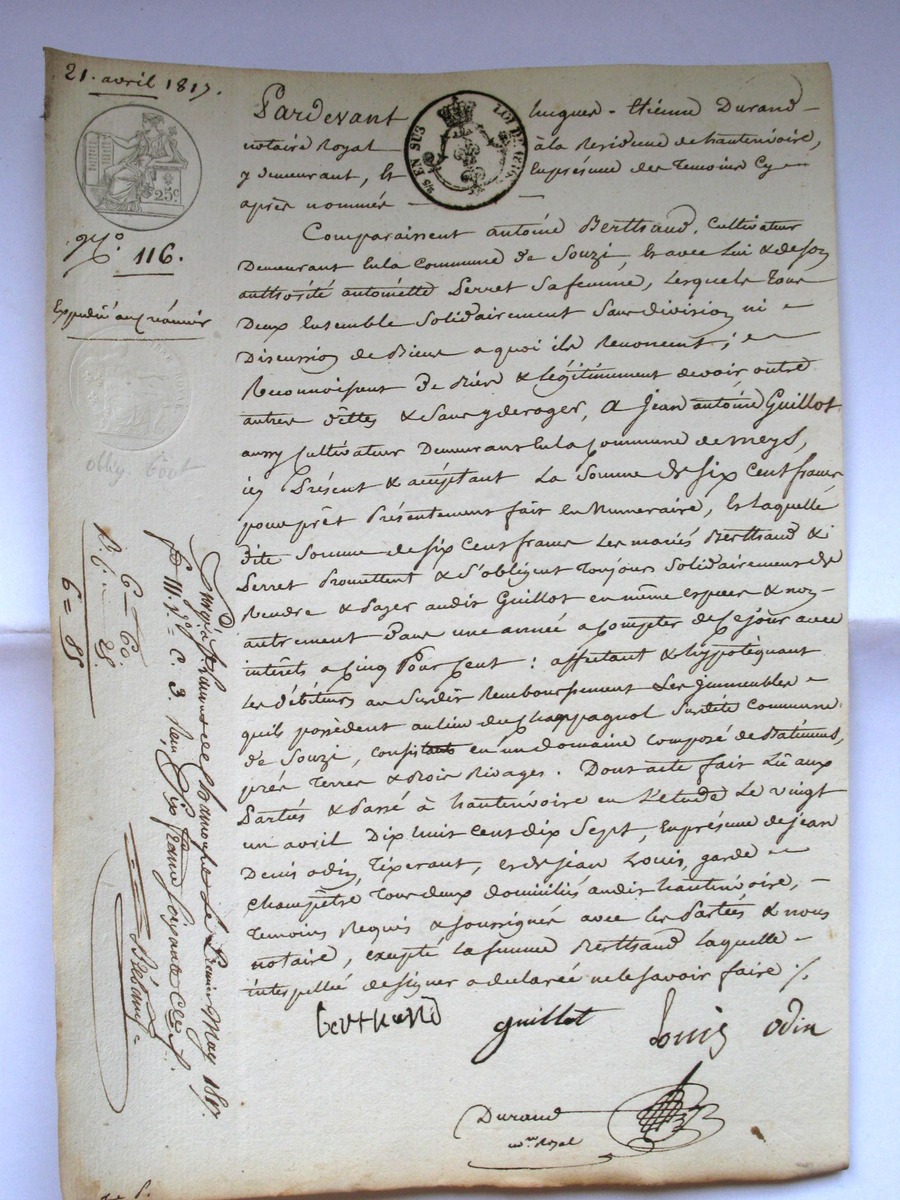 21. avril 1817.
25c
N.° 116.
Expédié au créancier
oblig.
Pardevant Jacques-Etienne Durand
LOI DE 1816
EN SUS
notaire Royal à la Residence de hauterivoire,
y demeurant, Et En présence des Temoins Cy
après nommés
Comparaissent antoine Berthaud, Cultivateur
Demeurant En la Commune de Souzi, Et avec Lui & de Son
authorité antoinette Perret Sa femme, Lesquels Tous
Deux Ensemble Solidairement Sans division ni
Discussion de Biens a quoi ils Renoncent;
Reconnoissent De & légitimement devoir outre
autres dettes & Sans y deroger, A Jean antoine Guillot
aussy Cultivateur Demeurant En la Commune de meys,
icy Présent & acceptant La Somme de Six Cent francs
pour prêt Présentement fait En Numeraire, Et Laquelle
dite Somme de Six Cent francs Les mariés Berthaud &
Perret Promettent & S'obligent Toujours Solidairement de
Rendre & Payer audit Guillot en même espece & non
autrement Dans une année a Compter de Ce jour avec
intérêts a Cinq Pour Cent: affectant & hypotèquant
Les débiteurs au Susdit Remboursement Les Immeubles
quils possèdent au lieu de Chappagnol Susdite Commune
de Souzi, en un domaine Composé de Batimens,
prés Terres & Bois Rivages. Dont acte fait Lû aux
Parties & Passé à hauterivoire en L'etude Le vingt
un avril Dix huit Cent dix Sept, En présence de jean
Denis odin, Tixerant, et de Jean Louis, garde
Champêtre Tous deux domiciliés audit hauterivoire,
Temoins Requis & Soussignés avec les Parties & nous
notaire, excepté La femme Berthaud Laquelle
interpellée de Signer a declarée ne le Savoir faire ./.
berthaud guillot Louis odin
Durand
nre Royal
6 = 60
28
6 = 88
Enregistré à St Laurent de Chamousset Le Premier May 1817.
fo 111 Vo C. 3. Reçu Six francs Soixante Ces.